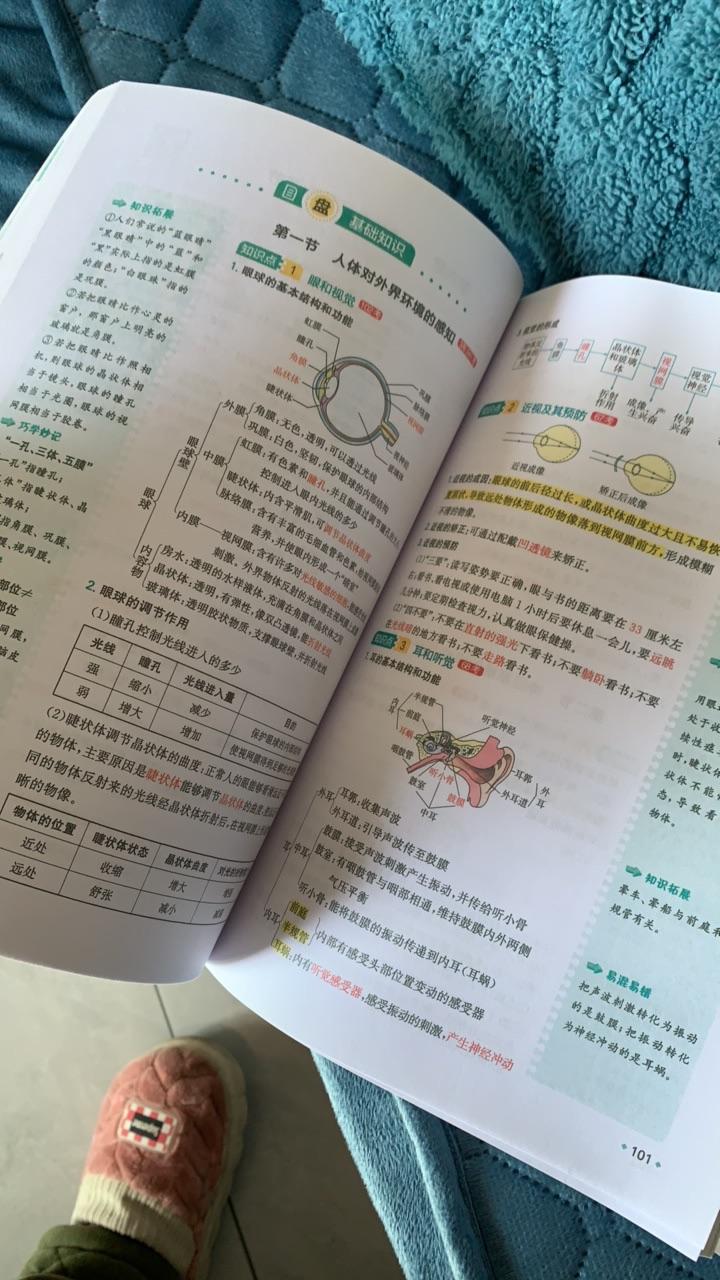 知识拓展
①人们常说的“蓝眼睛”
“黑眼睛”中的“蓝”和
“黑”实际上指的是虹膜
的颜色；“白眼珠”指的
是巩膜。
②若把眼睛比作心灵的
窗户，那窗户上明亮的
玻璃就是角膜。
③若把眼睛比作照相
机，则眼球的晶状体相
当于镜头，眼球的瞳孔
相当于光圈，眼球的视
网膜相当于胶卷。
巧学妙记
“一孔、三体、五膜”
一孔”指瞳孔；
体”指睫状体、晶
玻璃体；
指角膜、巩膜、
膜、视网膜。
部位≠
部位
网膜，
盘
基础知识
第一节 人体对外界环境的感知
知识点 1 眼和视觉
1. 眼球的基本结构和功能
虹膜
瞳孔
角膜
晶状体
睫状体
巩膜
脉络膜
视网膜
视神经
玻璃体
眼球
眼球壁
外膜
角膜：无色，透明，可以透过光线
巩膜：白色，坚韧，保护眼球的内部结构
中膜
虹膜：有色素和瞳孔，并且能通过调节瞳孔的大小
控制进入眼内光线的多少
睫状体：内含平滑肌，可调节晶状体曲度
脉络膜：含有丰富的毛细血管和色素，给视网膜
营养，并使眼内形成一个“暗室”
内膜——视网膜：含有许多对光线敏感的细胞，能感受光的
刺激。外界物体反射的光线落在视网膜上成像
内容物
房水：透明的水样液体，充满在角膜和晶状体之间
晶状体：透明，有弹性，像双凸透镜，能折射光线
玻璃体：透明胶状物质，支撑眼球壁，并折射光线
2. 眼球的调节作用
(1)瞳孔控制光线进入的多少
光线 瞳孔 光线进入量 目的
强 缩小 减少 保护眼球的内部结构
弱 增大 增加 使视网膜得到足够的光刺激
(2)睫状体调节晶状体的曲度：正常人的眼能够看清远近不同
的物体，主要原因是睫状体能够调节晶状体的曲度，使远近不
同的物体反射来的光线经晶状体折射后，在视网膜上形成清
晰的物像。
物体的位置 睫状体状态 晶状体曲度
近处 收缩 增大 增强
远处 舒张 减小 减弱
3. 视觉的形成
角膜
瞳孔
晶状体和玻璃体
视网膜
视觉神经
折射作用
成像，产生兴奋
传导兴奋
知识点 2 近视及其预防
近视成像
矫正后成像
1. 近视的成因：眼球的前后径过长，或晶状体曲度过大且不易恢
复原状，导致远处物体形成的物像落到视网膜前方，形成模糊
不清的物像。
2. 近视的矫正：可通过配戴凹透镜来矫正。
3. 近视的预防
(1)“三要”：读写姿势要正确，眼与书的距离要在 33 厘米左
右；看书、看电视或使用电脑 1 小时后要休息一会儿，要远眺
几分钟；要定期检查视力，认真做眼保健操。
(2)“四不要”：不要在直射的强光下看书；不要躺卧看书；不要
在光线暗的地方看书；不要走路看书。
知识点 3 耳和听觉
1. 耳的基本结构和功能
内耳
半规管
前庭
耳蜗
咽鼓管
鼓室
听小骨
鼓膜
中耳
听觉神经
外耳道
耳郭
外耳
耳
外耳
耳郭：收集声波
外耳道：引导声波传至鼓膜
中耳
鼓膜：接受声波刺激产生振动，并传给听小骨
鼓室：有咽鼓管与咽部相通，维持鼓膜内外两侧
气压平衡
听小骨：能将鼓膜的振动传递到内耳(耳蜗)
内耳
前庭
半规管
内部有感受头部位置变动的感受器
耳蜗：内有听觉感受器，感受振动的刺激，产生神经冲动
用眼
处于收
续性痉
时，睫状体
状体不能
态，导致看
物体。
知识拓展
晕车、晕船与前庭和
规管有关。
易混易错
把声波刺激转化为振动
的是鼓膜；把振动转化
为神经冲动的是耳蜗。
101